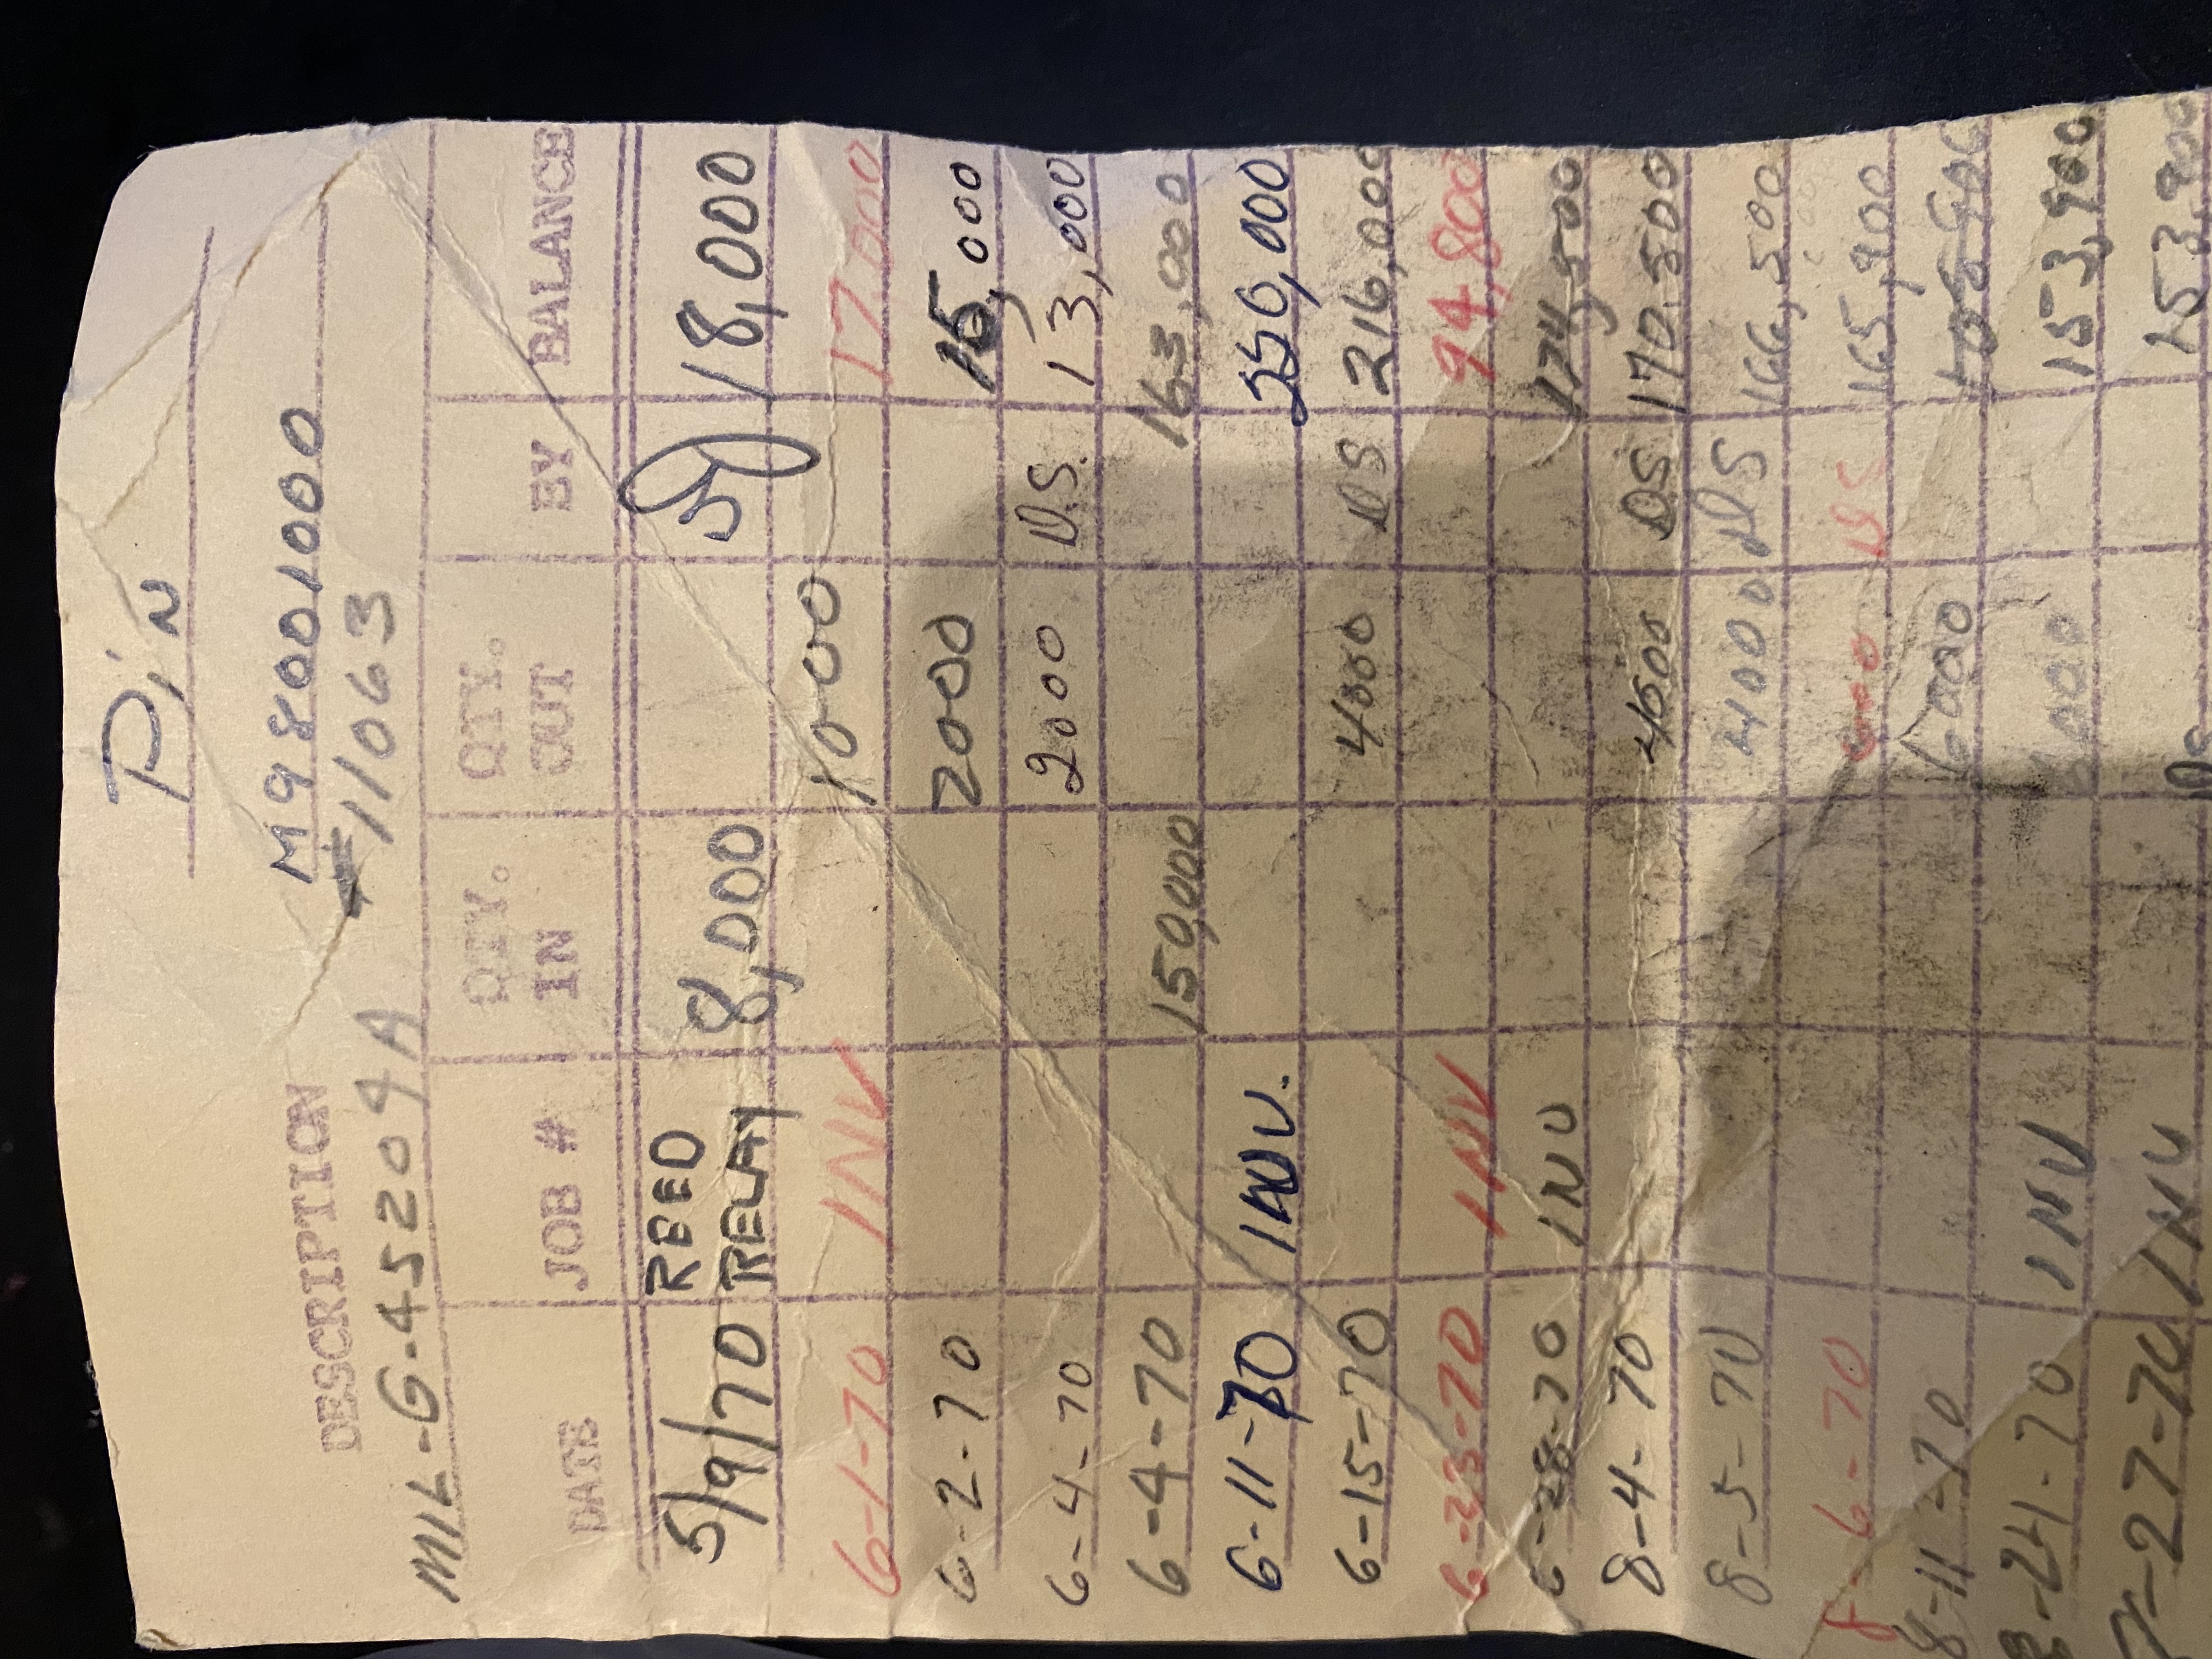 Pin
M98001000
#11063
DESCRIPTION
MIL-G-45204A
DATE JOB # QTY. IN QTY. OUT BY BALANCE
5/9/70 REED RELAY 8,000 18,000
6-1-70 INV 1000 17,000
6-2-70 2000 15,000
6-4-70 2000 D.S. 13,000
6-4-70 150,000 163,000
6-11-70 INV. 220,000
6-15-70 4000 DS 216,000
6-23-70 INV 94,800
6-28-70 INU 174,500
8-4-70 4000 DS 170,500
8-5-70 4000 DS 166,500
8-6-70 DS 165,900
8-11-70 6000
8-24-70 INU 153,900
-27-70 INU 153,900